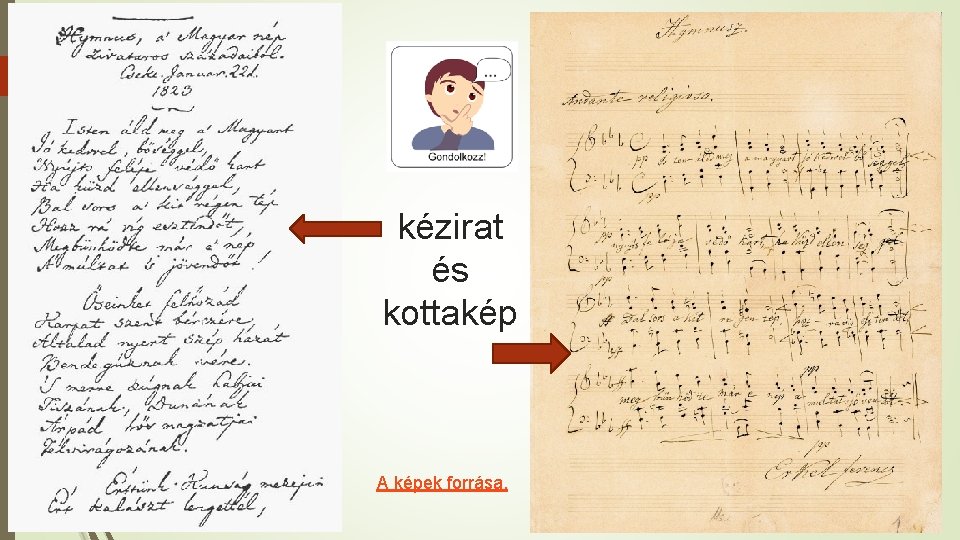 Hymnus, a' Magyar nép
zivataros századaiból.
Cseke. Januar. 22d.
1823
Isten áld meg a' Magyart
Jó kedvvel, bőséggel,
Nyújts feléje védő kart
Ha küzd ellenséggel,
Bal sors a' kit régen tép
Hozz rá víg esztendőt,
Megbűnhődte már a' nép
A' multat 's jövendőt!
Őseinket felhozád
Kárpát szent bérczére,
Általad nyert szép hazát
Bendegúznak vére.
'S merre zúgnak habjai
Tiszának, Dunának
Árpád hős magzatjai
Felvirágozának.
Értünk Kunság mezején
Ért kalászt lengettél,
...
Gondolkozz!
kézirat
és
kottakép
A képek forrása.
Hymnusz.
Andante religioso.
pp
a magyart
pp
védő kart
pp
ff Bal sors a kit régen tép
ff
pp
ff meg bűnhődte már e nép a multat
ff
pp
Erkel Ferencz